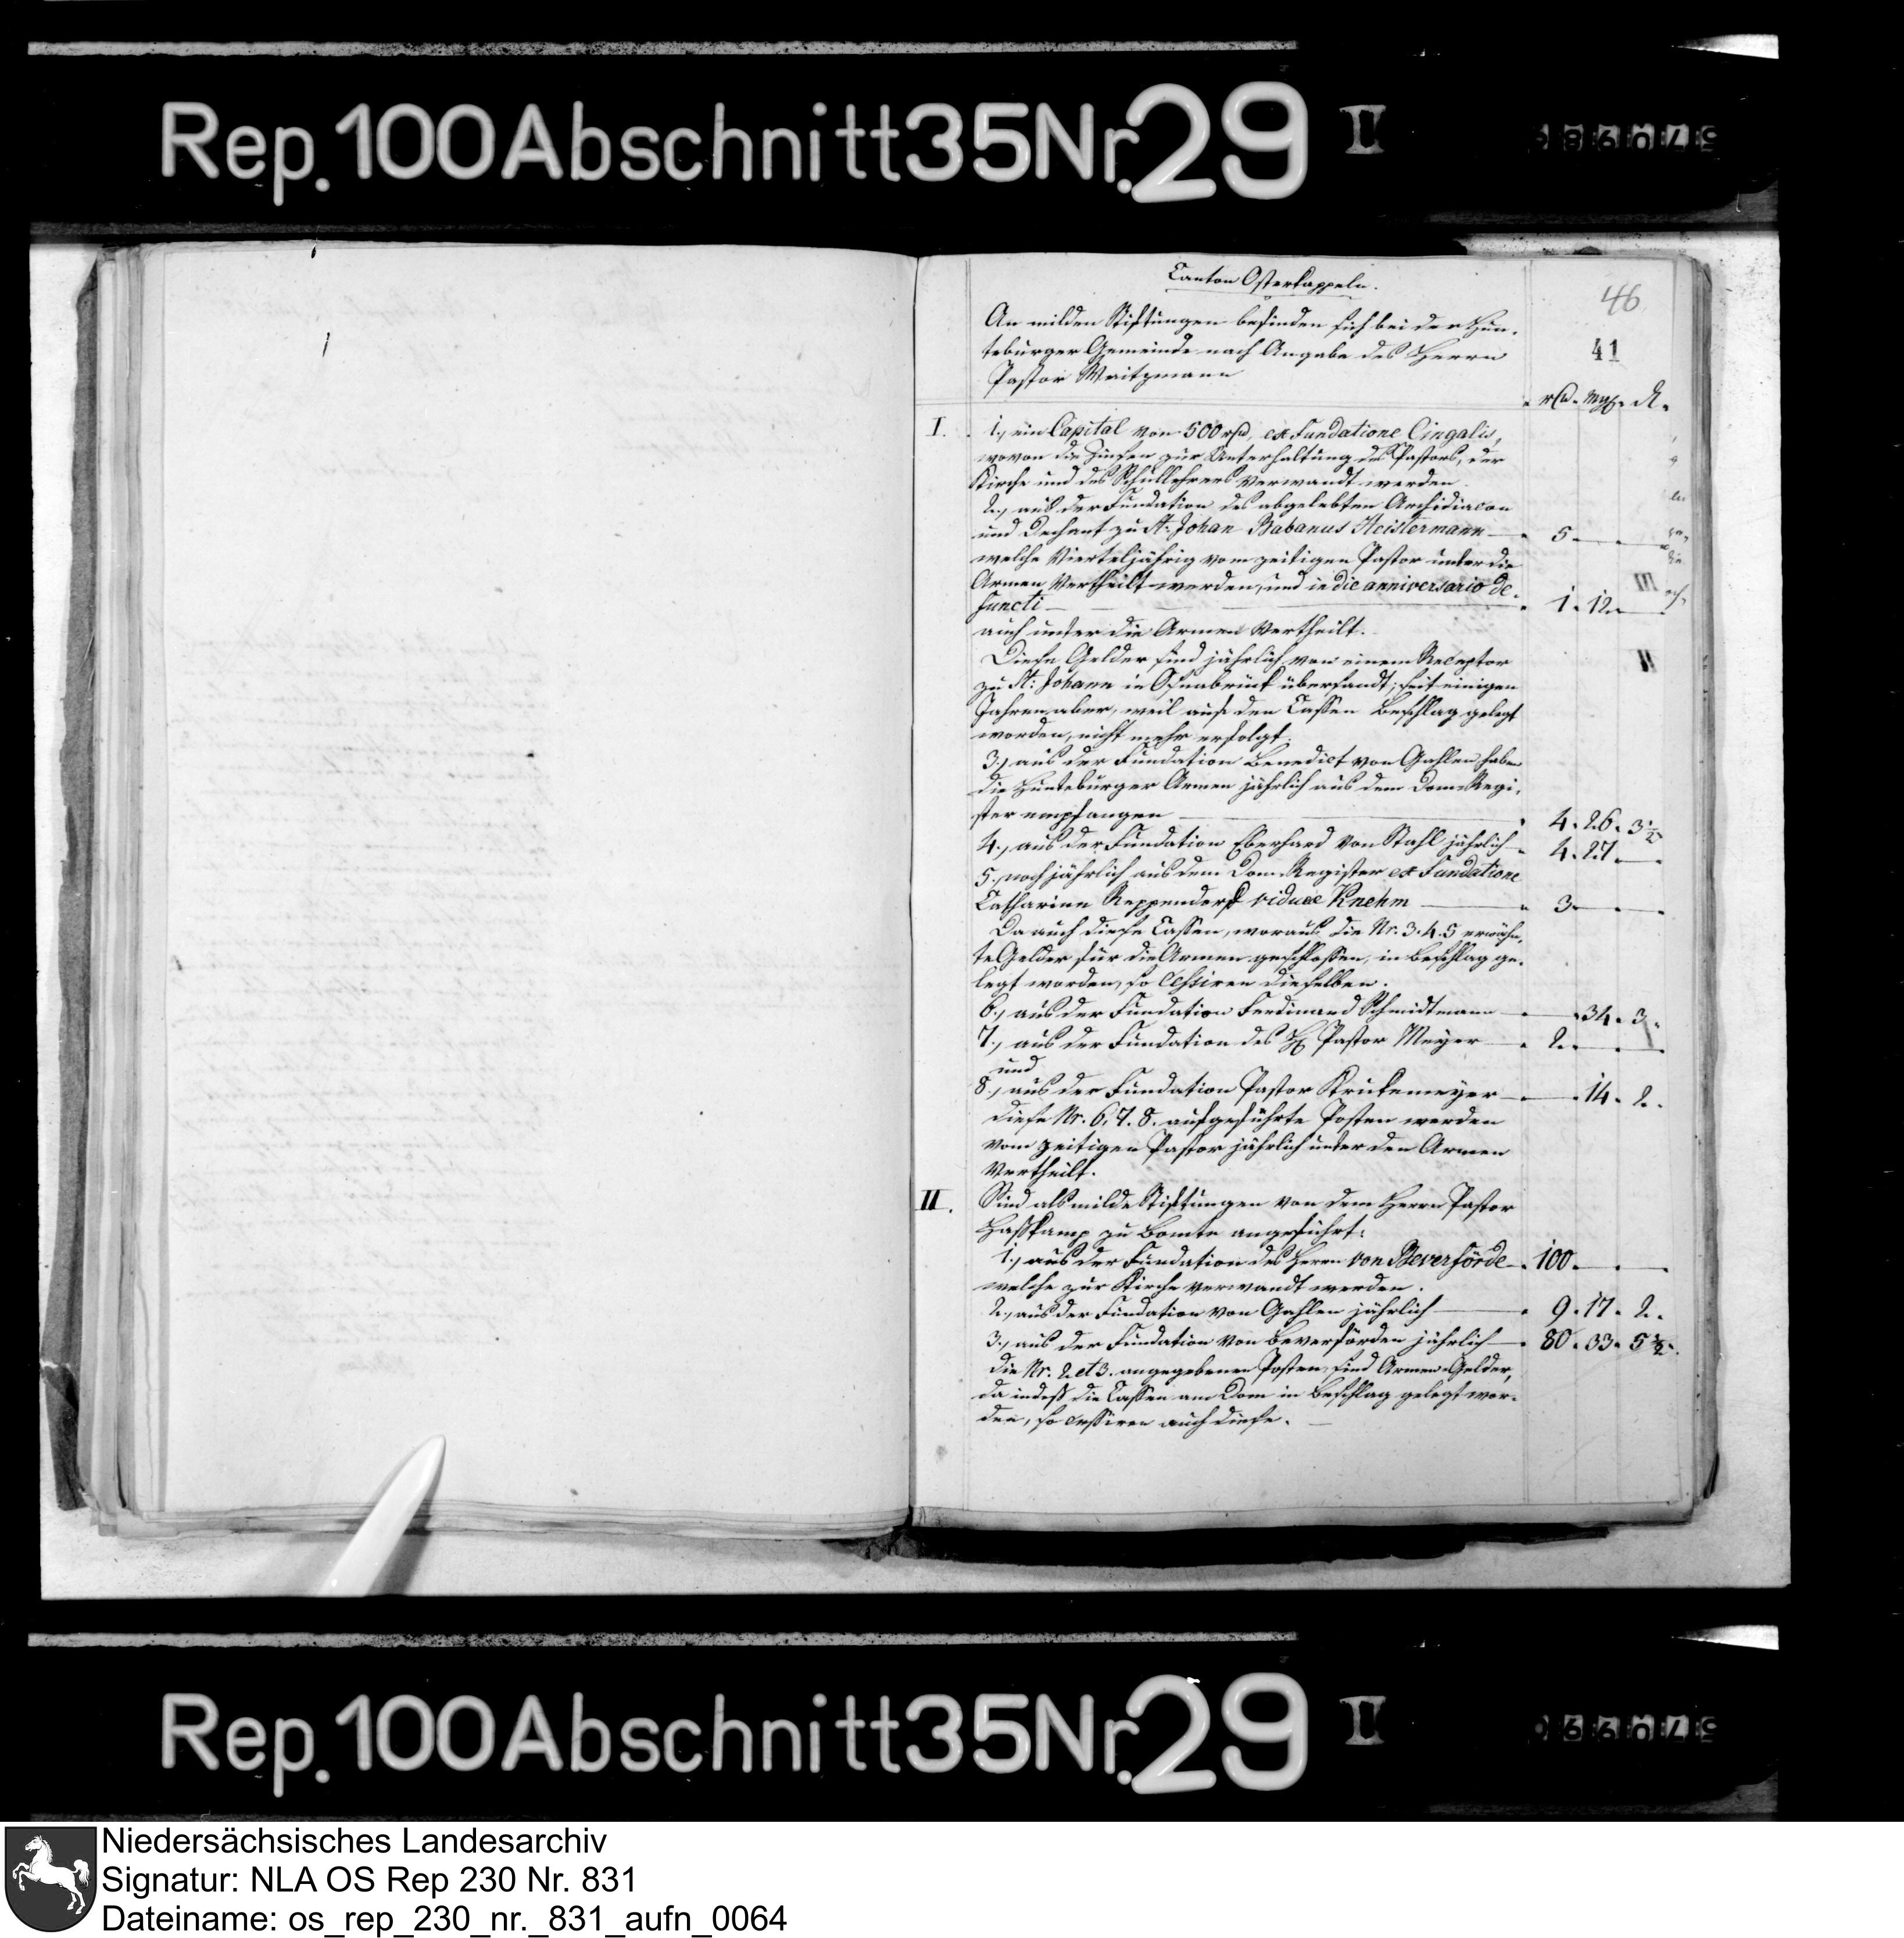 Rep. 100 Abschnitt 35 Nr. 29 I
Canton Osterkappeln.
46
41
An milden Stiftungen befinden sich bei der Hun¬
teburger Gemeinde nach Angabe des Herrn
Pastor Weitzmann
I. 1., ein Capital von 500 rh, ex Fundatione Cingalis,
wovon die Zinsen zur Unterhaltung des Pastors, der
Kirche und des Schullehrers verwandt werden.
2., aus der Fundation des abgelebten Archidiacon
und Dechant zu St. Johan Rabanus Heistermann 5
welche Vierteljährig vom zeitigen Pastor unter die
Armen Vertheilt werden, und in die anniversario de¬
functi 1. 12.
auch unter die Armen Vertheilt.
Diese Gelder sind jährlich von einem Receptor
zu St: Johann in Osnabrück übersandt; seit einigen
Jahren aber, weil auf den Cassen Beschlag gelegt
worden, nicht mehr erfolgt.
3., aus der Fundation Benedict von Gahlen haben
die Hunteburger Armen jährlich aus dem Dom Regi¬
ster empfangen 4. 26. 3 1/2
4., aus der Fundation Eberhard von Stahl jährlich 4. 27.
5., noch jährlich aus dem Dom Register ex Fundatione
Catharina Reppendorf viduae Knehm 3
Da auch diese Cassen, woraus die Nr. 3. 4. 5 erwähn¬
te Gelder für die Armen geschlossen, in Beschlag ge¬
legt worden, so cessiren dieselben.
6., aus der Fundation Ferdinand Schmidtmann 34. 3.
7., aus der Fundation des H Pastor Meyer 2.
und
8., aus der Fundation Pastor Strickemeyer 14. 2.
diese Nr. 6. 7. 8. aufgeführte Posten werden
vom zeitigen Pastor jährlich unter den Armen
Vertheilt.
II. Sind als milde Stiftungen von dem Herrn Pastor
Haßkamp zu Bomte angeführt:
1., aus der Fundation des Herrn von Beverförde 100.
welche zur Kirche verwandt werden.
2., aus der Fundation von Gahlen jährlich 9. 17. 2.
3., aus der Fundation von Beverförden jährlich 80. 33. 5 1/2.
die Nr. 2 et 3. angegebenen Posten, sind Armen-Gelder,
da indeß die Cassen am Dom in Beschlag gelegt wor¬
den, so cessiren auch diese.
Rep. 100 Abschnitt 35 Nr. 29 I
Niedersächsisches Landesarchiv
Signatur: NLA OS Rep 230 Nr. 831
Dateiname: os_rep_230_nr._831_aufn_0064